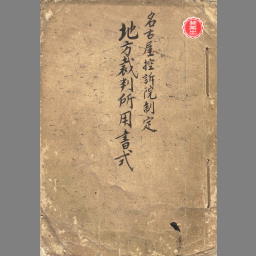 名古屋控訴院制定
地方裁判所用書式